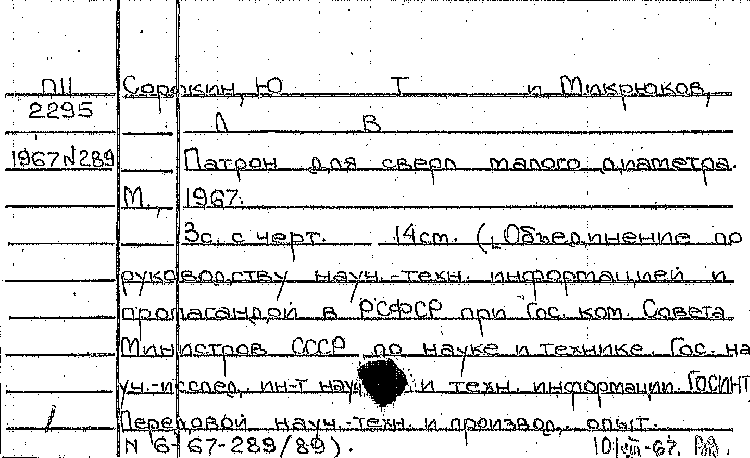 ПІІ Сорокин, Ю Т и Микрюков,
2295
Л В
1967 N289 Патрон для сверл малого диаметра.
М., 1967.
3с. с черт. 14см. (Объединение по
руководству науч.-техн. информацией и
пропагандой в РСФСР при Гос. ком. Совета
Министров СССР по науке и технике. Гос. на
уч.-исслед. ин-т науч и техн. информации. ГОСИНТ
Передовой науч.-техн. и производ. опыт.
N 6-67-289/89). 10/VII-67.